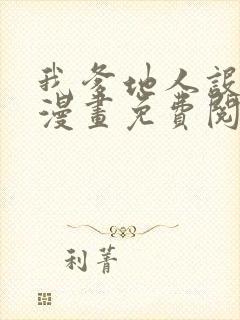 我爹地人設
漫畫免費閱
利菁